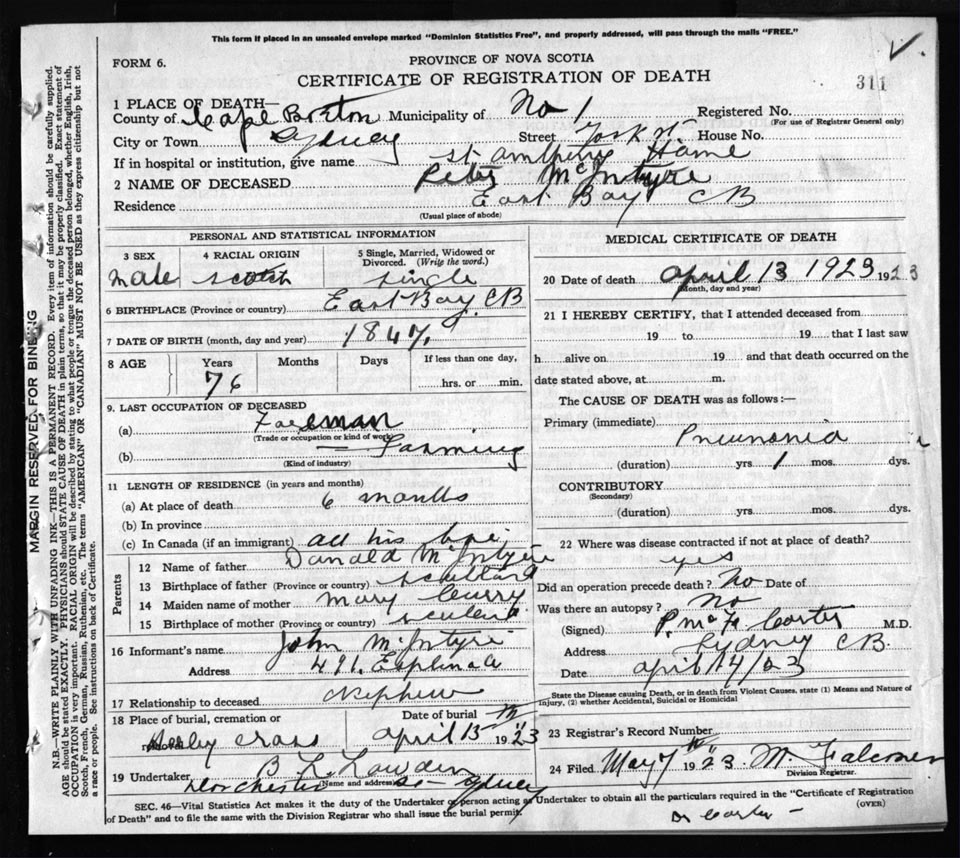 This form if placed in an unsealed envelope marked "Dominion Statistics Free", and properly addressed, will pass through the mails "FREE."
FORM 6.
PROVINCE OF NOVA SCOTIA
CERTIFICATE OF REGISTRATION OF DEATH
311
1 PLACE OF DEATH—
County of Cape Breton Municipality of No 1 Registered No.
(For use of Registrar General only)
City or Town Sydney Street York St. House No.
If in hospital or institution, give name St Anthony Home
2 NAME OF DECEASED Peter McIntyre
Residence East Bay CB
(Usual place of abode)
PERSONAL AND STATISTICAL INFORMATION
3 SEX 4 RACIAL ORIGIN 5 Single, Married, Widowed or Divorced. (Write the word.)
Male Scotch Single
6 BIRTHPLACE (Province or country) East Bay CB
7 DATE OF BIRTH (month, day and year) 1847
8 AGE Years Months Days If less than one day,
76 hrs. or min.
9. LAST OCCUPATION OF DECEASED
(a)
(Trade or occupation or kind of work)
(b) Farming
(Kind of industry)
11 LENGTH OF RESIDENCE (in years and months)
(a) At place of death 6 months
(b) In province
(c) In Canada (if an immigrant) all his life
Parents
12 Name of father Donald McIntyre
13 Birthplace of father (Province or country) Scotland
14 Maiden name of mother Mary Curry
15 Birthplace of mother (Province or country)
16 Informant's name John McIntyre
Address 491 Esplanade
17 Relationship to deceased Nephew
18 Place of burial, cremation or Date of burial
Holy Cross April 15th 1923
19 Undertaker
(Name and address)
Dorchester St Sydney
MEDICAL CERTIFICATE OF DEATH
20 Date of death April 13 1923 1923
(Month, day and year)
21 I HEREBY CERTIFY, that I attended deceased from
19 to 19 that I last saw
h alive on 19 and that death occurred on the
date stated above, at m.
The CAUSE OF DEATH was as follows:—
Primary (immediate)
Pneumonia
(duration) yrs. 1 mos. dys.
CONTRIBUTORY
(Secondary)
(duration) yrs. mos. dys.
22 Where was disease contracted if not at place of death?
yes
Did an operation precede death? No Date of
Was there an autopsy? No
(Signed) M.D.
Address Sydney CB
Date April 14/23
State the Disease causing Death, or in death from Violent Causes, state (1) Means and Nature of
Injury, (2) whether Accidental, Suicidal or Homicidal
23 Registrar's Record Number
24 Filed May 7th 1923 M. Falconer
Division Registrar.
SEC. 46—Vital Statistics Act makes it the duty of the Undertaker or person acting as Undertaker to obtain all the particulars required in the "Certificate of Registration
of Death" and to file the same with the Division Registrar who shall issue the burial permit.
(OVER)
MARGIN RESERVED FOR BINDING
N.B.—WRITE PLAINLY WITH UNFADING INK—THIS IS A PERMANENT RECORD. Every item of information should be carefully supplied.
AGE should be stated EXACTLY. PHYSICIANS should STATE CAUSE OF DEATH in plain terms, so that it may be properly classified. Exact statement of
OCCUPATION is very important. RACIAL ORIGIN will be described by stating to what people or tongue the deceased person belonged, whether English, Irish,
Scotch, French, German, Russian, Ruthenian, etc. The terms "AMERICAN" OR "CANADIAN" MUST NOT BE USED as they express citizenship but not
a race or people. See instructions on back of Certificate.